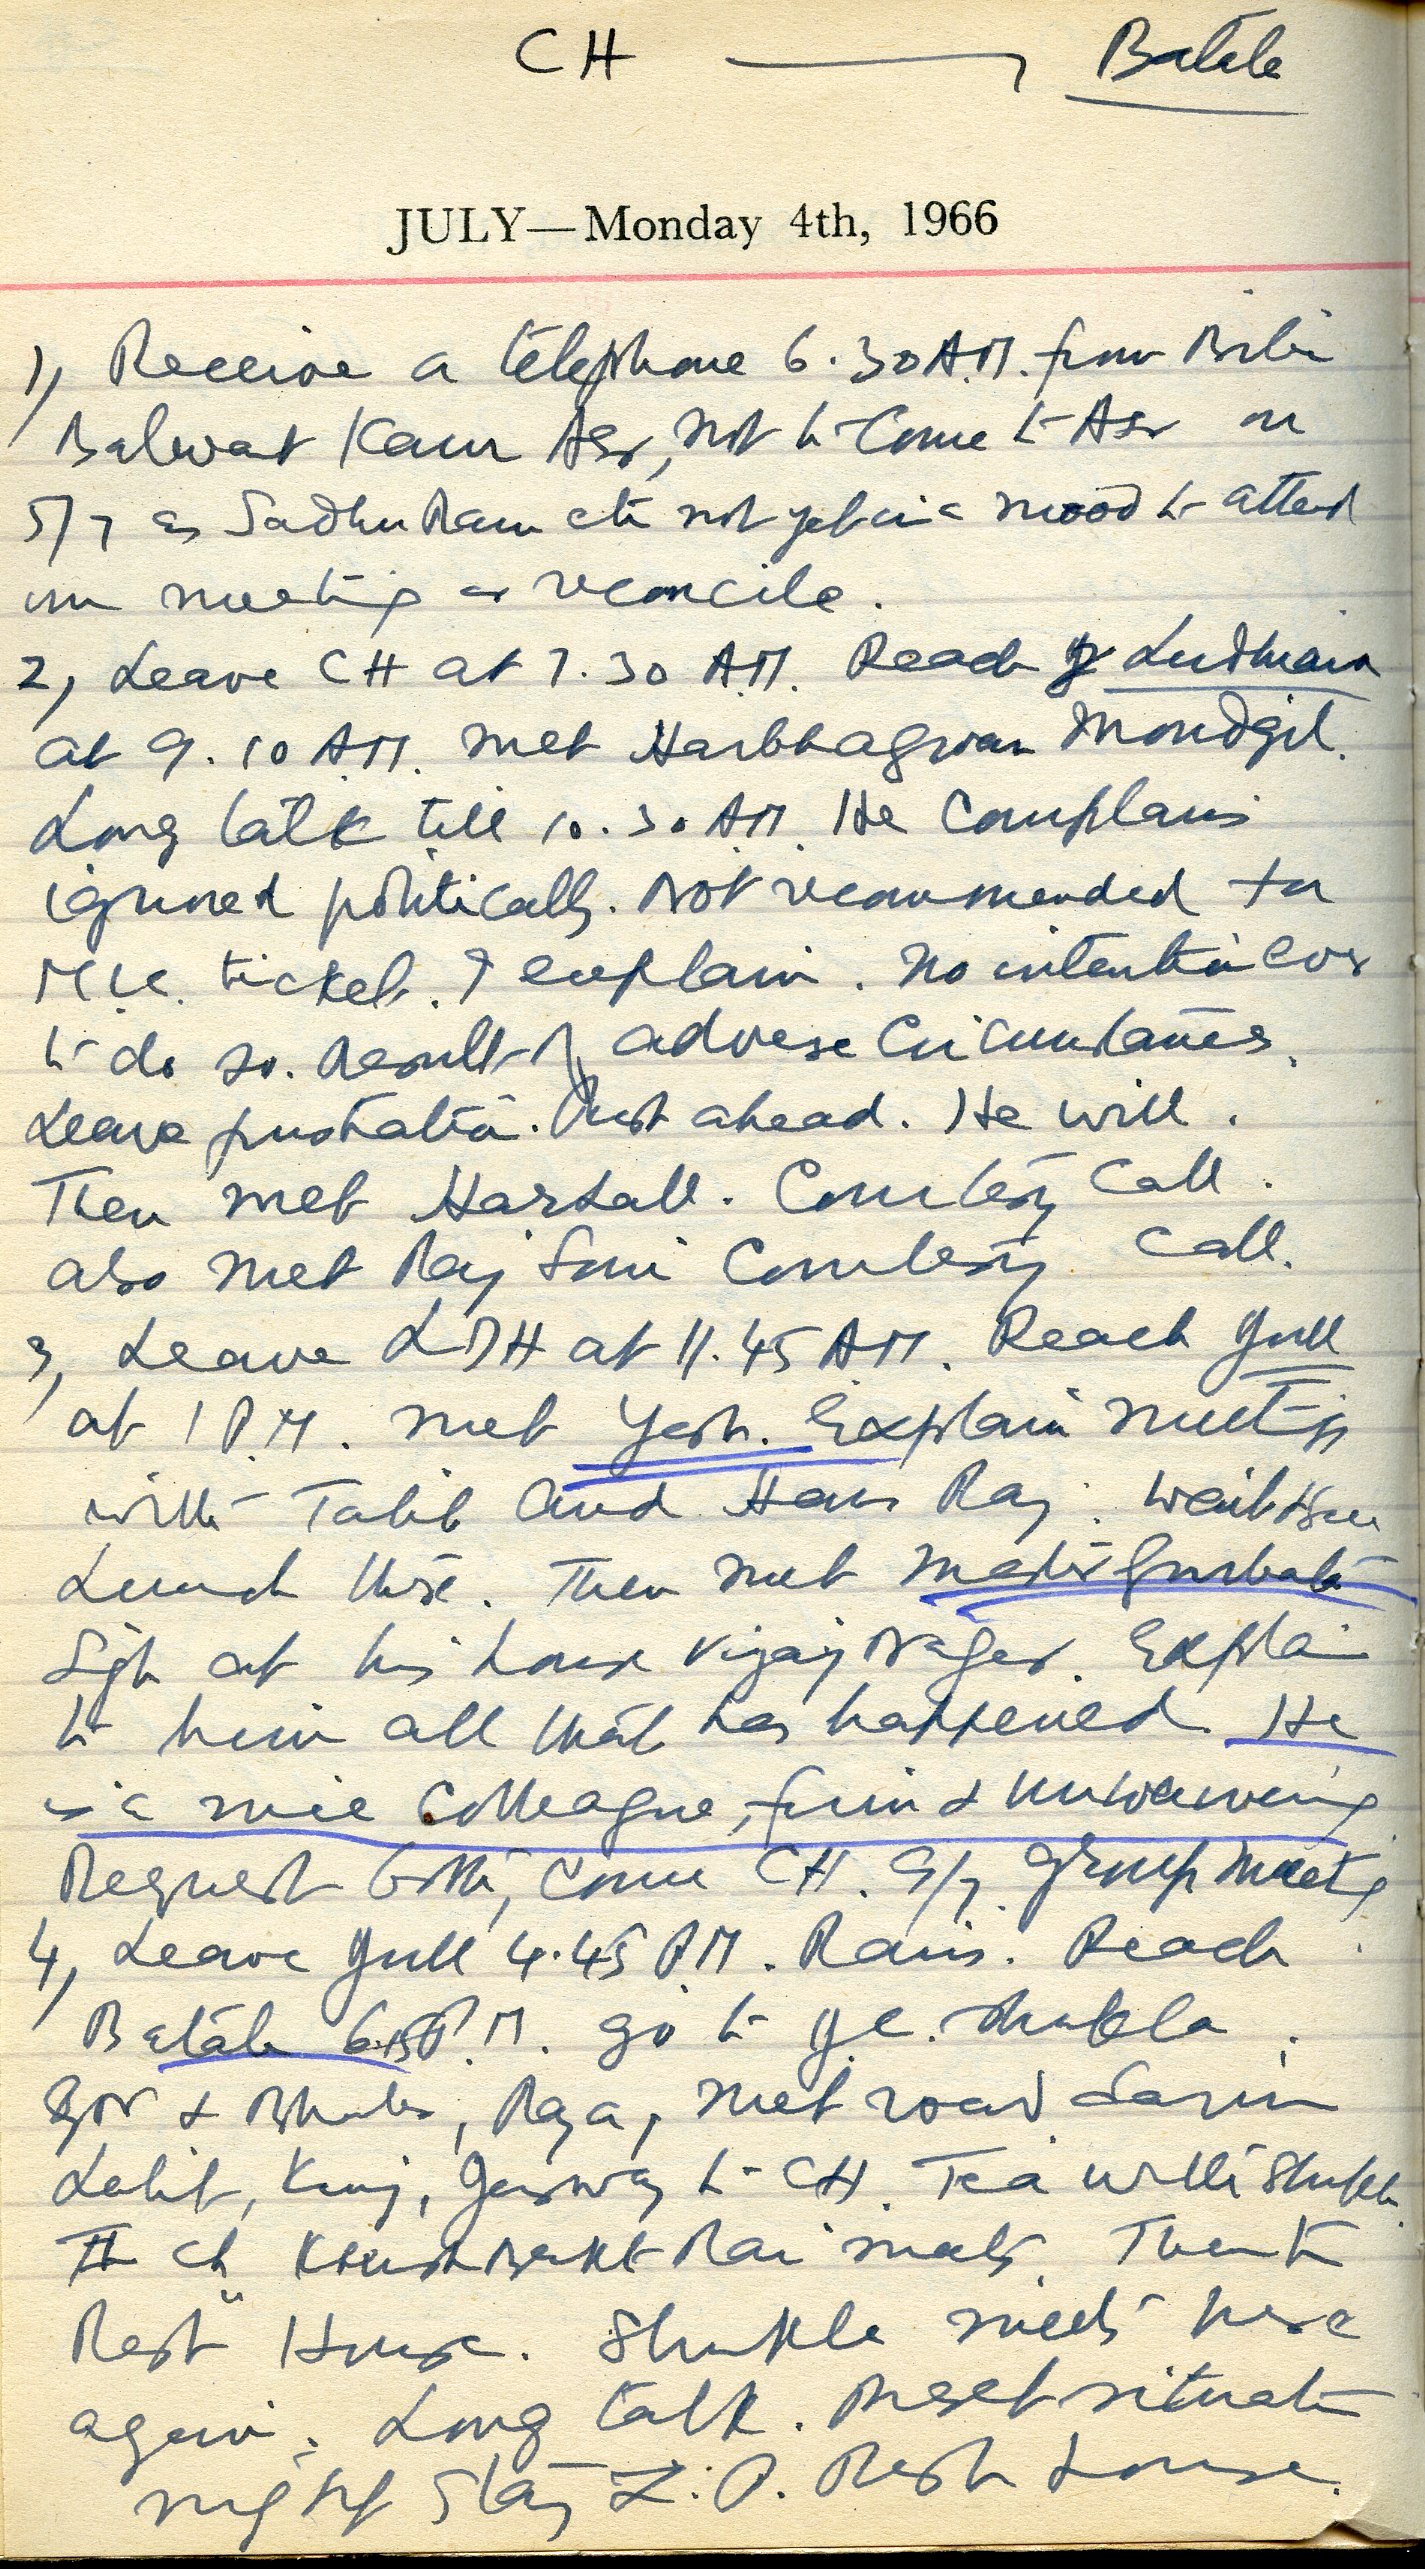 CH Batala
JULY—Monday 4th, 1966
1, Receive a telephone 6.30 A.M. from Bibi
Balwat Kaur ASR, not to come to ASR on
5/7 as Sadhu Ram etc not yet in a mood to attend
meeting or reconcile.
2, Leave CH at 7.30 A.M. Reach Ludhiana
at 9.10 A.M. met Harbhagwan Moudgil.
Long talk till 10.30 AM He complains
ignored politically. Not recommended for
MLC. ticket. I explain. No intention ever
to do so. Result of adverse Circumstances.
Leave frustration. Push ahead. He will.
Then met Harsall. Courtesy Call.
also met Raj Soni Courtesy Call.
3, Leave LDH at 11.45 AM. Reach Jull
at 1 P.M. met Yash. Explain meeting
with Talib and Hans Raj.
Lunch there. Then met Master Gurbanta
Sigh at his house Vijay Nagar. Explain
to him all that has happened. He
is a nice Colleague, firm & unwavering
Request both, come CH. 9/7. group meeting
4, Leave Jull 4.45 P.M. Rains. Reach
Batala P.M. go to Shukla.
&, Raja, met road Sarin
Lalit, to CH. Tea with Shukla
Ch Khushbakht Rai meets. Then to
Rest House. Shukla meets here
again. Long talk. situation
night stay Z.P. Rest House.